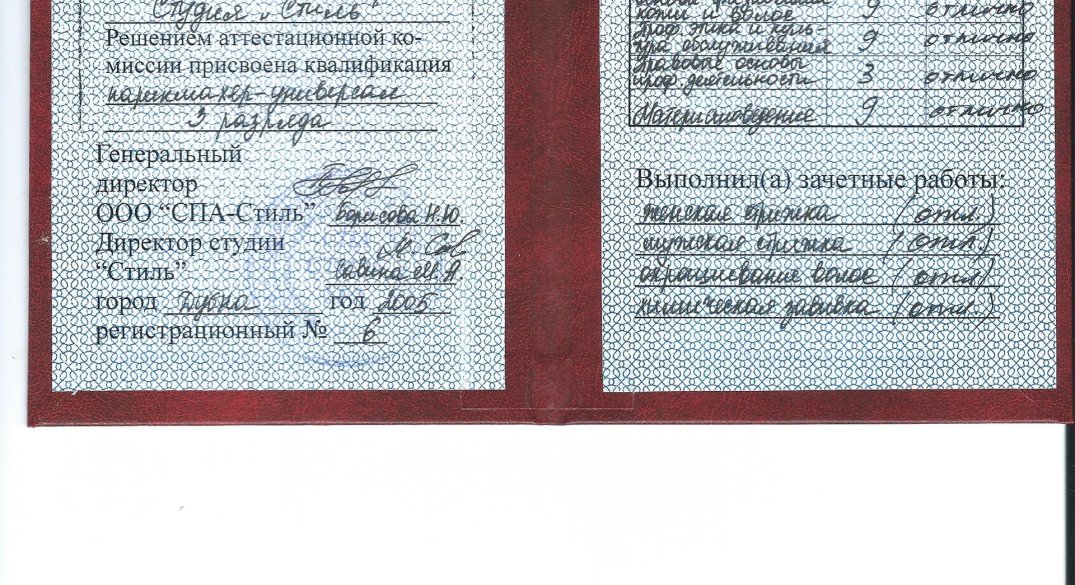 Студия „Стиль“
Решением аттестационной ко-
миссии присвоена квалификация
парикмахер-универсал
3 разряда
Генеральный
директор
ООО “СПА-Стиль” Борисова Н.Ю.
Директор студии
“Стиль” Савина М.А.
город Дубна год 2005
регистрационный № 6
кожи и волос 9 отлично
Проф. этика и куль-
тура обслуживания 9 отлично
Правовые основы
проф. деятельности 3 отлично
Материаловедение 9 отлично
Выполнил(а) зачетные работы:
женская стрижка (отл.)
мужская стрижка (отл.)
окрашивание волос (отл.)
химическая завивка (отл.)